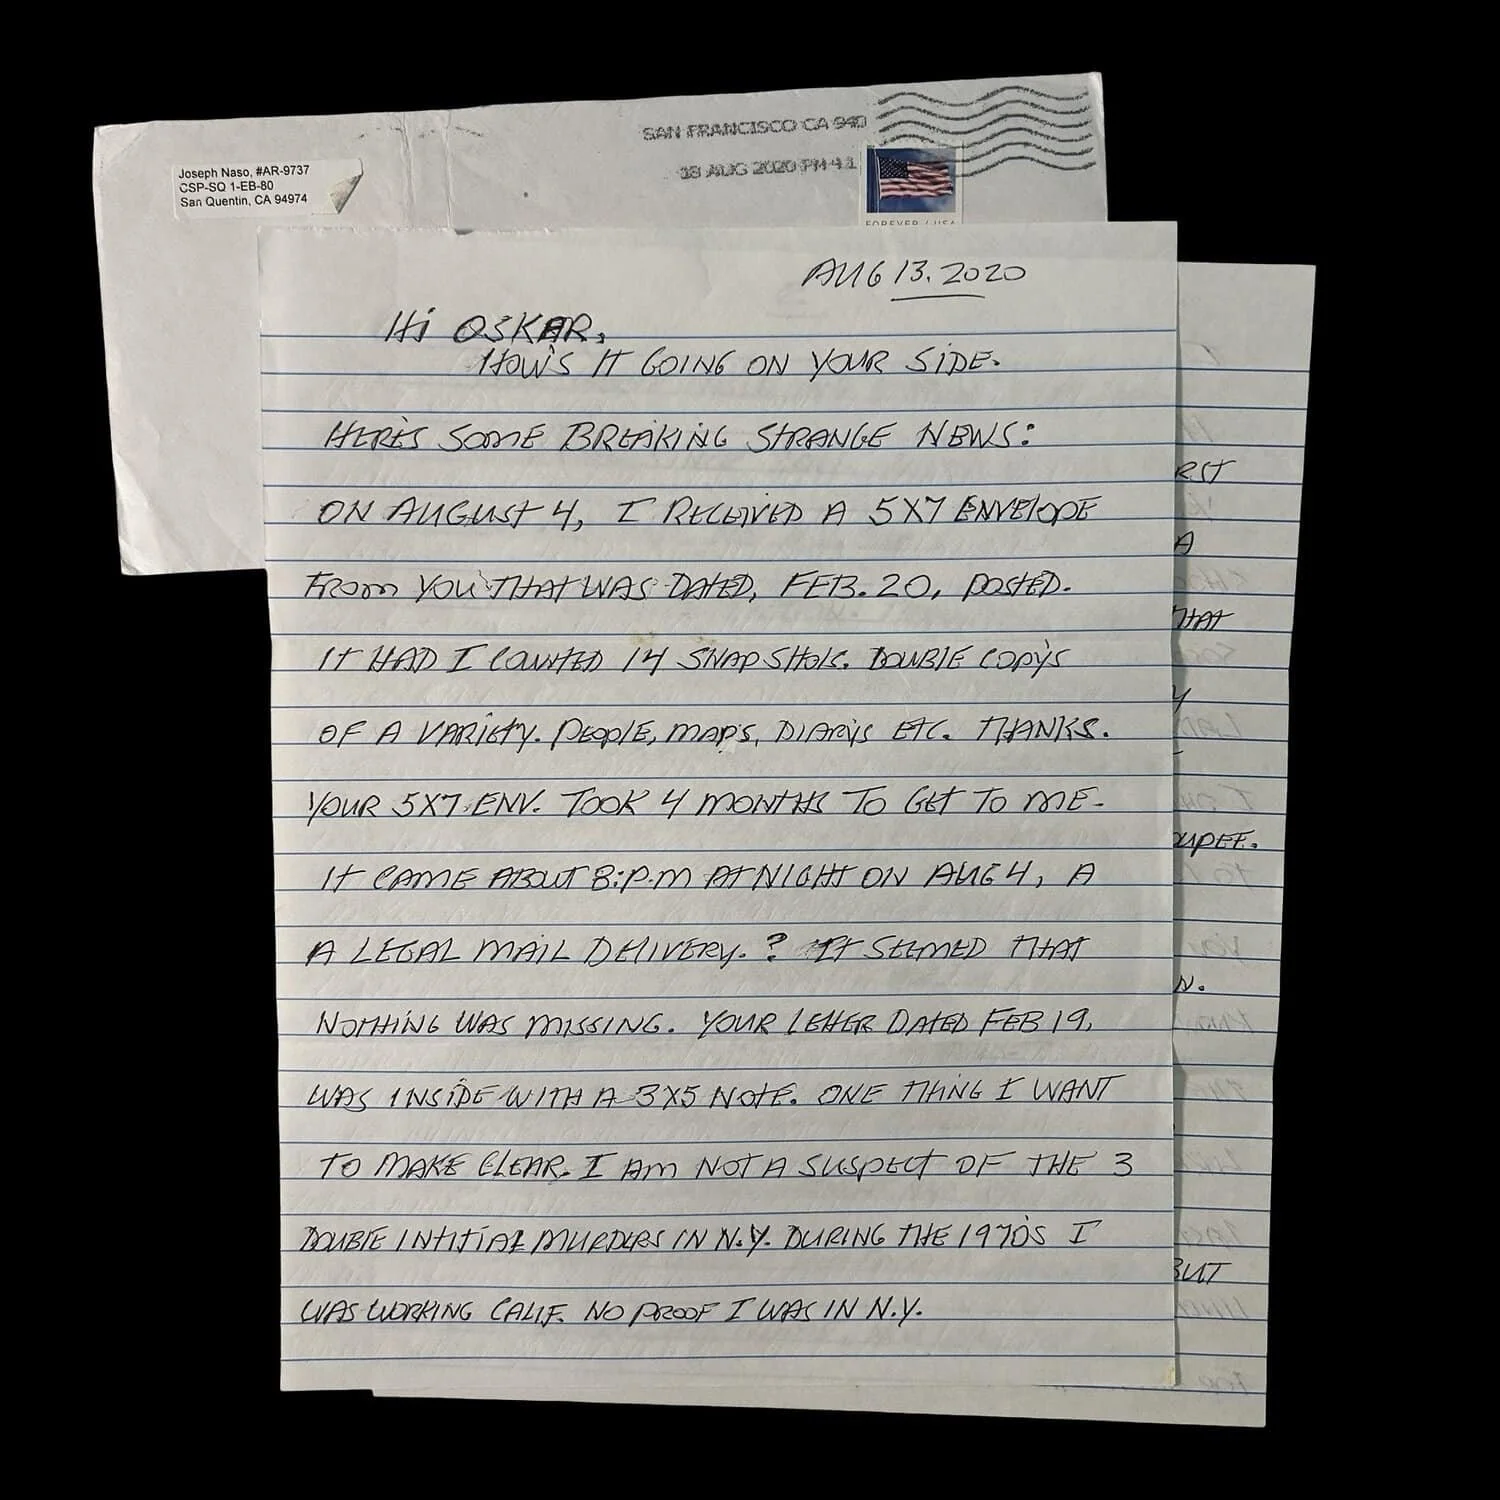 Joseph Naso, #AR-9737
CSP-SQ 1-EB-80
San Quentin, CA 94974
SAN FRANCISCO CA 940
18 AUG 2020 PM 4 1
FOREVER / USA
AUG 13. 2020
Hi OSKAR,
HOW'S IT GOING ON YOUR SIDE.
HERE'S SOME BREAKING STRANGE NEWS:
ON AUGUST 4, I RECEIVED A 5X7 ENVELOPE
FROM YOU THAT WAS DATED, FEB. 20, POSTED.
IT HAD I COUNTED 14 SNAP SHOTS. DOUBLE COPY'S
OF A VARIETY. PEOPLE, MAPS, DIARYS ETC. THANKS.
YOUR 5X7 ENV. TOOK 4 MONTHS TO GET TO ME-
IT CAME ABOUT 8:P.M AT NIGHT ON AUG 4, A
A LEGAL MAIL DELIVERY. ? IT SEEMED THAT
NOTHING WAS MISSING. YOUR LETTER DATED FEB 19,
WAS INSIDE WITH A 3X5 NOTE. ONE THING I WANT
TO MAKE CLEAR. I AM NOT A SUSPECT OF THE 3
DOUBLE INTITIAL MURDERS IN N.Y. DURING THE 1970'S I
WAS WORKING CALIF. NO PROOF I WAS IN N.Y.
RST
A
THAT
Y
OUPEE.
N.
BUT